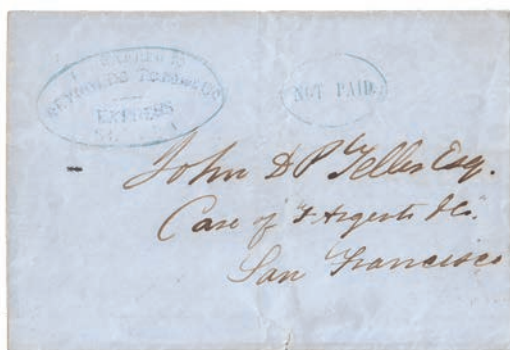 REYNOLDS TODD & CO
EXPRESS
NOT PAID
John D P Teller Esq.
Care of F Argenti & Co.
San Francisco